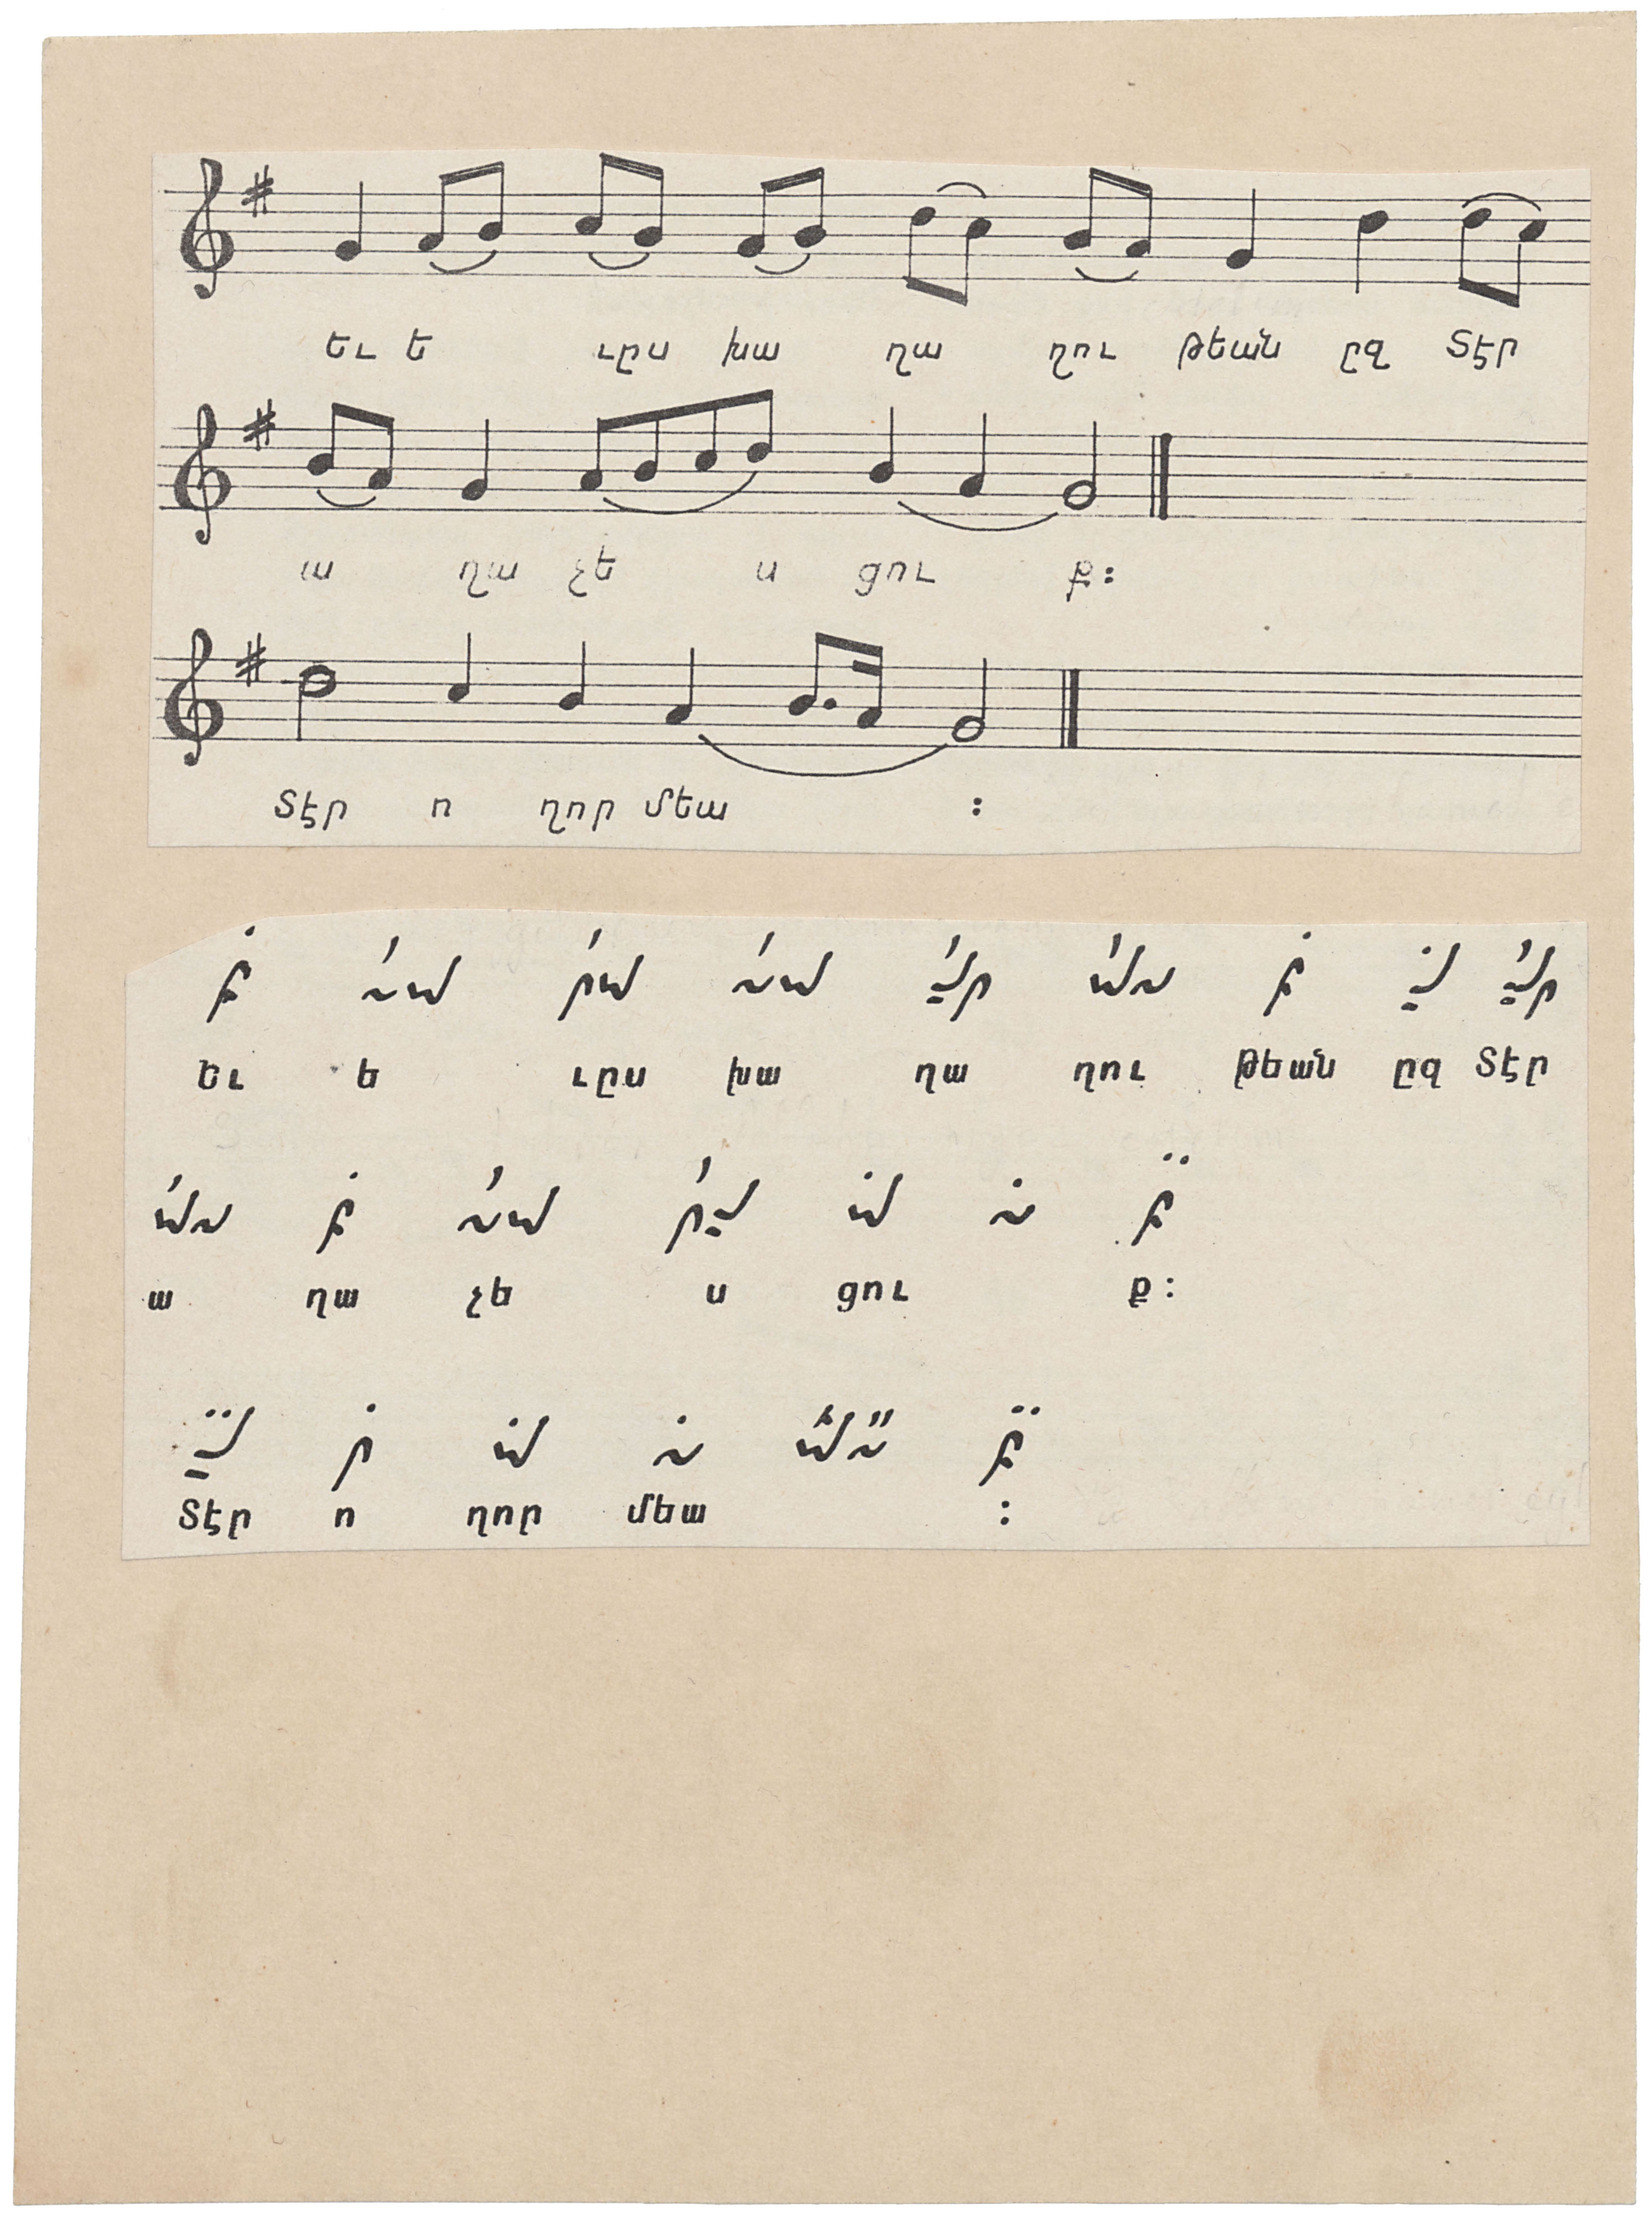 Եւ ե ւըս խա ղա ղու թեան ըզ Տէր
ա ղա չե ս ցու ք։
Տէր ո ղոր մեա ։
Եւ ե ւըս խա ղա ղու թեան ըզ Տէր
ա ղա չե ս ցու ք։
Տէր ո ղոր մեա ։